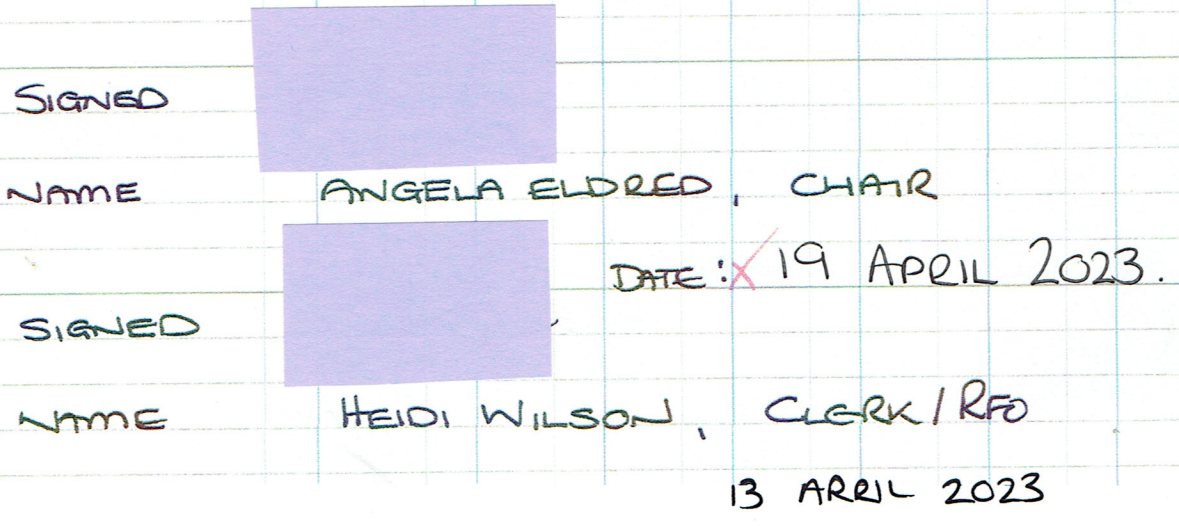 SIGNED
NAME ANGELA ELDRED, CHAIR
DATE: X 19 APRIL 2023.
SIGNED
NAME HEIDI WILSON, CLERK/RFO
13 APRIL 2023